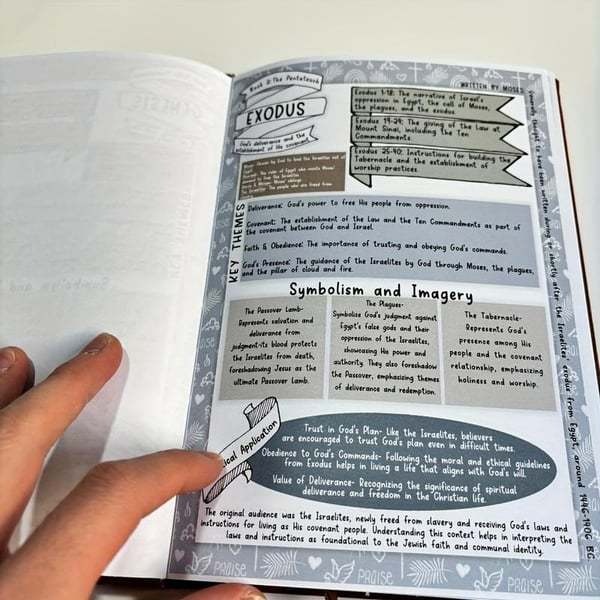 Book 2: The Pentateuch
EXODUS
God's deliverance and the
establishment of His covenant
WRITTEN BY MOSES
Exodus 1-18: The narrative of Israel's
oppression in Egypt, the call of Moses,
the plagues, and the exodus
Exodus 19-24: The giving of the Law at
Mount Sinai, including the Ten
Commandments
Exodus 25-40: Instructions for building the
Tabernacle and the establishment of
worship practices
Moses: Chosen by God to lead the Israelites out of
Egypt
Pharaoh: The ruler of Egypt who
The Israelites: The people who are freed from
KEY THEMES
Deliverance: God's power to free His people from oppression.
Covenant: The establishment of the Law and the Ten Commandments as part of
the covenant between God and Israel.
Faith & Obedience: The importance of trusting and obeying God's commands.
God's Presence: The guidance of the Israelites by God through Moses, the plagues,
and the pillar of cloud and fire.
Symbolism and Imagery
The Passover Lamb-
Represents salvation and
deliverance from
judgment-its blood protects
the Israelites from death,
foreshadowing Jesus as the
ultimate Passover Lamb.
The Plagues-
Symbolize God's judgment against
Egypt's false gods and their
oppression of the Israelites,
showcasing His power and
authority. They also foreshadow
the Passover, emphasizing themes
of deliverance and redemption.
The Tabernacle-
Represents God's
presence among His
people and the covenant
relationship, emphasizing
holiness and worship.
ical Application
Trust in God's Plan- Like the Israelites, believers
are encouraged to trust God's plan even in difficult times.
Obedience to God's Commands- Following the moral and ethical guidelines
from Exodus helps in living a life that aligns with God's will.
Value of Deliverance- Recognizing the significance of spiritual
deliverance and freedom in the Christian life.
The original audience was the Israelites, newly freed from slavery and receiving God's laws and
instructions for living as His covenant people. Understanding this context helps in interpreting the
laws and instructions as foundational to the Jewish faith and communal identity.
thought to have been written during or shortly after the Israelites' exodus from Egypt, around 1446-1406 BC
PRAISE
PRAISE
PRAISE